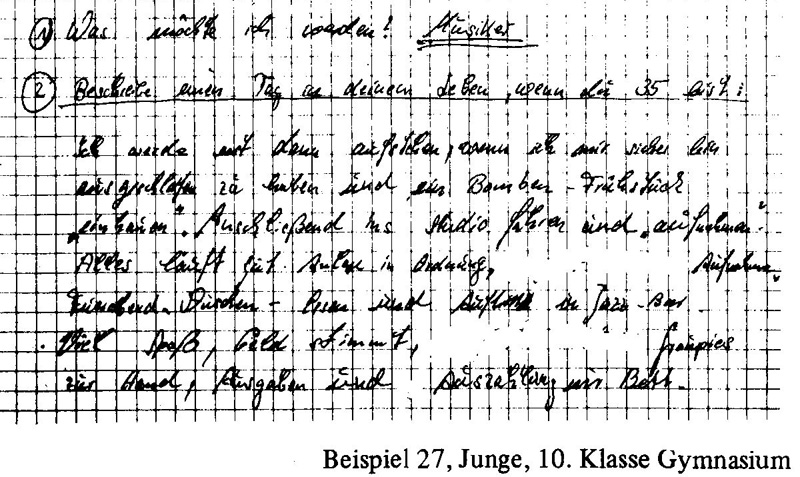 ① Was möchte ich werden? Musiker
② Beschreibe einen Tag in deinem Leben, wenn du 35 bist:
Ich werde erst dann aufstehen, wenn ich mir sicher bin
ausgeschlafen zu haben und ein Bomben-Frühstück
„einhauen". Anschließend ins Studio fahren und „aufnehmen".
Alles läuft gut. Anlage in Ordnung, Aufnahme
Duschen - essen und Auftritt in Jazz-Bar.
Viel Spaß, Geld stimmt, Groupies
zur Hand, Ausgaben und Auszahlung ins Bett.
Beispiel 27, Junge, 10. Klasse Gymnasium